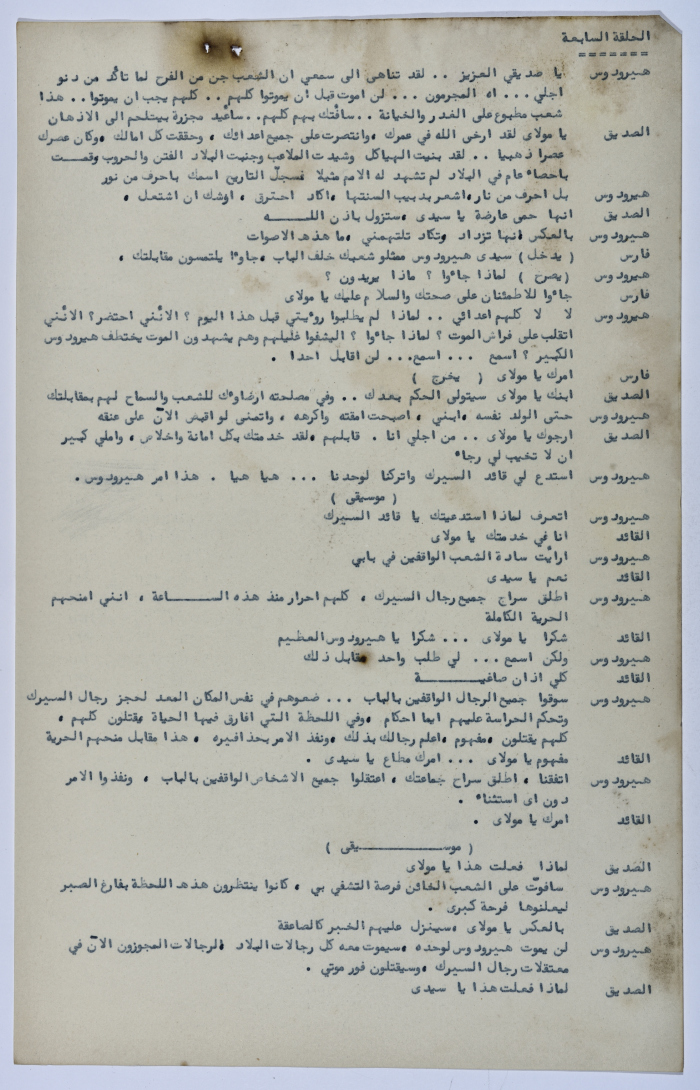 الحلقة السابعة
=======
هيرودوس يا صديقي العزيز .. لقد تناهى الى سمعي ان الشعب جن من الفرح لما تأكد من دنو
اجلي ... اه المجرمون ... لن اموت قبل ان يموتوا كلهم .. كلهم يجب ان يموتوا .. هذا
شعب مطبوع على الغدر والخيانة .. سافتك بهم كلهم .. سأعيد مجزرة بيتلحم الى الاذهان
الصديق يا مولاى لقد ارخى الله في عمرك ، وانتصرت على جميع اعدائك ، وحققت كل امالك ، وكان عصرك
عصرا ذهبيا .. لقد بنيت الهياكل وشيدت الملاعب وجنبت البلاد الفتن والحروب وقمـــت
باحصاء عام في البلاد لم تشهد له الامم مثيلا فسجل التاريخ اسمك باحرف من نور
هيرودوس بل احرف من نار ، اشعر بدبيب السنتها ، اكاد احترق ، اوشك ان اشتعل ،
الصديق انها حمى عارضة يا سيدى ، ستزول باذن اللـــــه
هيرودوس بالعكس انها تزداد وتكاد تلتهمني ، ما هذه الاصوات
فارس ( يدخل ) سيدى هيرودوس ممثلو شعبك خلف الباب ، جاءوا يلتمسون مقابلتك ،
هيرودوس ( يصرخ ) لماذا جاءوا ؟ ماذا يريدون ؟
فارس جاءوا للاطمئنان على صحتك والسلام عليك يا مولاى
هيرودوس لا لا كلهم اعدائي .. لماذا لم يطلبوا رويتي قبل هذا اليوم ؟ الانني احتضر؟ الانني
اتقلب على فراش الموت ؟ لماذا جاءوا ؟ اليشفوا غليلهم وهم يشهدون الموت يختطف هيرودوس
الكبير ؟ اسمع ... اسمع ... لن اقابل احدا .
فارس امرك يا مولاى ( يخرج )
الصديق ابنك يا مولاى سيتولى الحكم بعدك .. وفي مصلحته ارضاوك للشعب والسماح لهم بمقابلتك
هيرودوس حتى الولد نفسه ، ابني ، اصبحت امقته واكرهه ، واتمنى لو اقبض الآن على عنقه
الصديق ارجوك يا مولاى .. من اجلي انا . قابلهم ، لقد خدمتك بكل امانة واخلاص ، واملي كبير
ان لا تخيب لي رجاء
هيرودوس استدع لي قائد السيرك واتركنا لوحدنا ... هيا هيا . هذا امر هيرودوس .
( موسيقى )
هيرودوس اتعرف لماذا استدعيتك يا قائد السيرك
القائد انا في خدمتك يا مولاى
هيرودوس ارأيت سادة الشعب الواقفين في بابي
القائد نعم يا سيدى
هيرودوس اطلق سراح جميع رجال السيرك ، كلهم احرار منذ هذه الســـــــاعة ، انني امنحهم
الحرية الكاملة
القائد شكرا يا مولاى ... شكرا يا هيرودوس العظيم
هيرودوس ولكن اسمع ... لي طلب واحد مقابل ذلك
القائد كلي اذان صاغيـــــــــة
هيرودوس سوقوا جميع الرجال الواقفين بالباب ... ضعوهم في نفس المكان المعد لحجز رجال السيرك
وتحكم الحراسة عليهم ايما احكام ، وفي اللحظة التي افارق فيها الحياة يقتلون كلهم ،
كلهم يقتلون ، مفهوم ، اعلم رجالك بذلك ، ونفذ الامر بحذافيره ، هذا مقابل منحهم الحرية
القائد مفهوم يا مولاى ... امرك مطاع يا سيدى .
هيرودوس اتفقنا ، اطلق سراح جماعتك ، اعتقلوا جميع الاشخاص الواقفين بالباب ، ونفذوا الامر
دون اى استثناء .
القائد امرك يا مولاى .
( موســـــــــــــيقى )
الصديق لماذا فعلت هذا يا مولاى
هيرودوس سافوت على الشعب الخائن فرصة التشفي بي ، كانوا ينتظرون هذه اللحظة بفارغ الصبر
ليعلنوها فرحة كبرى .
الصديق بالعكس يا مولاى ، سينزل عليهم الخبر كالصاعقة
هيرودوس لن يموت هيرودوس لوحده ، سيموت معه كل رجالات البلاد ، الرجالات المجوزون الآن في
معتقلات رجال السيرك ، وسيقتلون فور موتي .
الصديق لماذا فعلت هذا يا سيدى